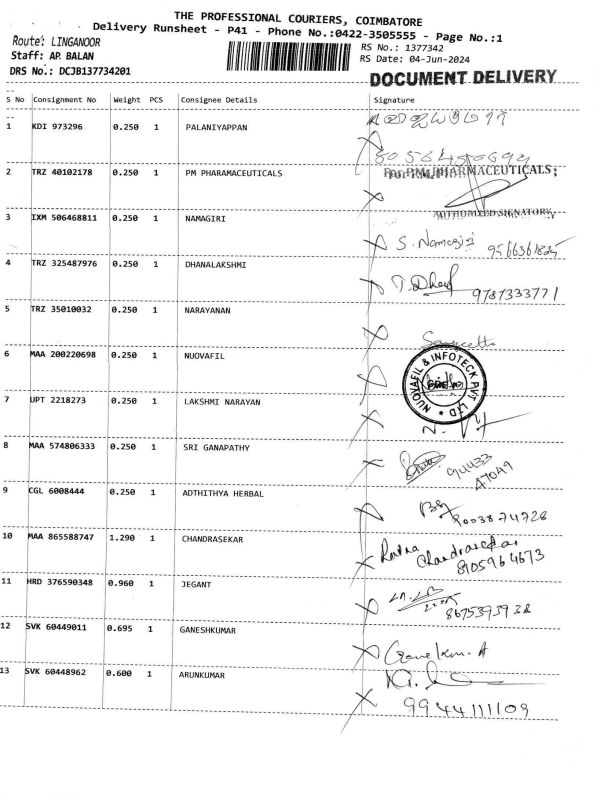 THE PROFESSIONAL COURIERS, COIMBATORE
Delivery Runsheet - P41 - Phone No.:0422-3505555 - Page No.:1
Route: LINGANOOR
RS No.: 1377342
Staff: AP. BALAN
RS Date: 04-Jun-2024
DRS No.: DCJB137734201
DOCUMENT DELIVERY
S No Consignment No Weight PCS Consignee Details Signature
1 KDI 973296 0.250 1 PALANIYAPPAN
2 TRZ 40102178 0.250 1 PM PHARAMACEUTICALS
For P.M. PHARMACEUTICALS;
AUTHORIZED SIGNATORY
3 IXM 506468811 0.250 1 NAMAGIRI
S. Namagiri 9566361825
4 TRZ 325487976 0.250 1 DHANALAKSHMI
9787333771
5 TRZ 35010032 0.250 1 NARAYANAN
6 MAA 200220698 0.250 1 NUOVAFIL
NUOVAFIL & INFOTECK PVT LTD
7 UPT 2218273 0.250 1 LAKSHMI NARAYAN
8 MAA 574806333 0.250 1 SRI GANAPATHY
94433
9 CGL 6008444 0.250 1 ADTHITHYA HERBAL
10 MAA 865588747 1.290 1 CHANDRASEKAR
Chandrasekar
8105964673
11 HRD 376590348 0.960 1 JEGANT
8675393938
12 SVK 60449011 0.695 1 GANESHKUMAR
13 SVK 60448962 0.600 1 ARUNKUMAR
9944111109